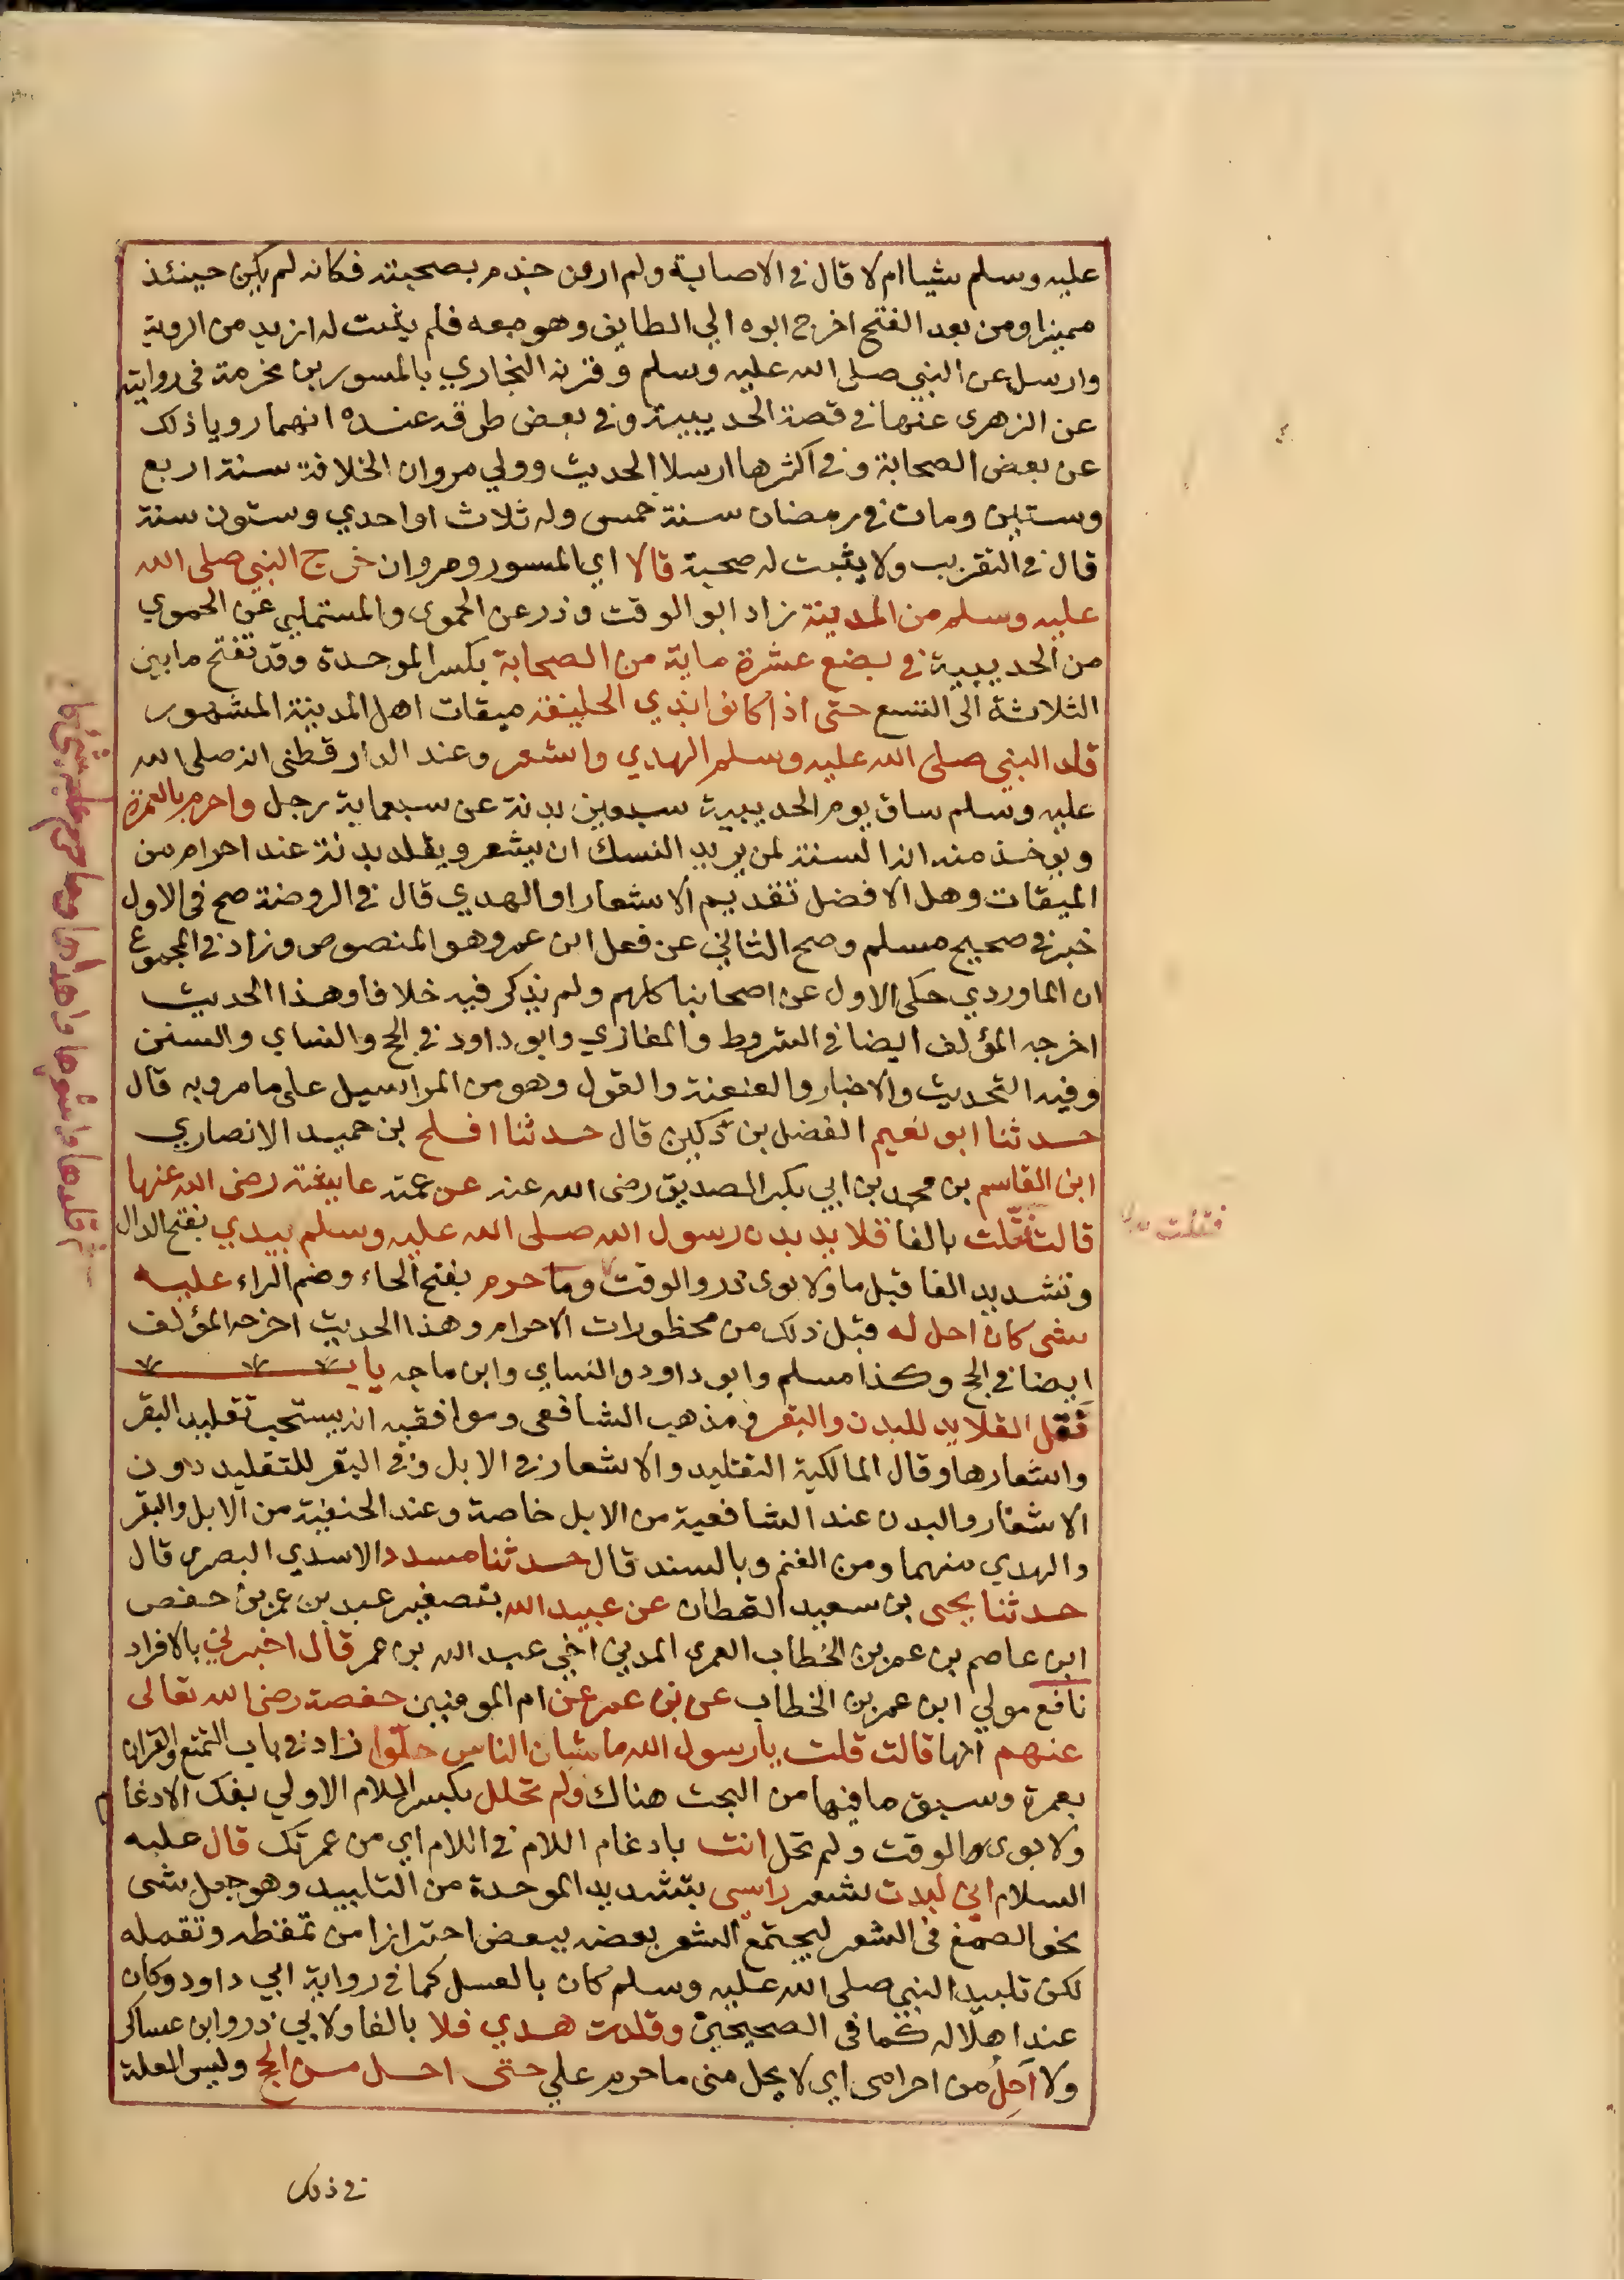 عليه وسلم شيا ام لا قال في الاصابة ولم ار من جزم بصحبته فكانه لم يكن حينئذ
مميزا ومن بعد الفتح اخرج ابوه الي الطايف وهو معه فلم يثبت له ازيد من الروية
وارسل عن النبي صلى الله عليه وسلم وقرنه البخاري بالمسور بن مخرمة في روايته
عن الزهرى عنهما في قصة الحديبية وفي بعض طرقه عنده انهما رويا ذلك
عن بعض الصحابة وفي اكثرها ارسلا الحديث وولي مروان الخلافة سنة اربع
وستين ومات في رمضان سنة خمس وله ثلاث او احدي وستون سنة
قال في التقريب ولا يثبت له صحبة قالا اي المسور ومروان خرج النبي صلى الله
عليه وسلم من المدينة زاد ابو الوقت وذر عن الحموى والمستملي عن الحموي
من الحديبية في بضع عشرة ماية من الصحابة بكسر الموحدة وقد تفتح ما بين
الثلاثة الى التسع حتى اذا كانوا بذي الحليفة ميقات اهل المدينة المشهور
قلد النبي صلى الله عليه وسلم الهدي واشعر وعند الدارقطني انه صلى الله
عليه وسلم ساق يوم الحديبية سبعين بدنة عن سبعماية رجل واحرم بالعمرة
ويوخذ منه ان السنة لمن يريد النسك ان يشعر ويقلد بدنة عند احرامه من
الميقات وهل الافضل تقديم الاشعار او الهدي قال في الروضة صح في الاول
خبر في صحيح مسلم وصح الثاني عن فعل ابن عمر وهو المنصوص وزاد في المجموع
ان الماوردي حكى الاول عن اصحابنا كلهم ولم يذكر فيه خلافا وهذا الحديث
اخرجه المؤلف ايضا في الشروط والمغازي وابو داود في الحج والنساي والسنن
وفيه التحديث والاخبار والعنعنة والقول وهو من المراسيل على ما مر وبه قال
حدثنا ابو نعيم الفضل بن دكين قال حدثنا افلح بن حميد الانصاري
ابن القاسم بن محمد بن ابي بكر الصديق رضى الله عنه عن عمته عايشة رضى الله عنها
فتلت
قالت فتلت بالفا قلايد بدن رسول الله صلى الله عليه وسلم بيدي بفتح الدال
وتشديد الفا قبل ما ولابوى ذر والوقت وما حرم بفتح الحاء وضم الراء عليه
شى كان احل له قبل ذلك من محظورات الاحرام وهذا الحديث اخرجه المؤلف
ايضا في الحج وكذا مسلم وابو داود والنساي وابن ماجه باب
فتل القلايد للبدن والبقر في مذهب الشافعى وموافقيه انه يستحب تقليد البقر
واشعارها وقال المالكية التقليد والاشعار في الابل وفي البقر للتقليد دون
الاشعار والبدن عند الشافعية من الابل خاصة وعند الحنفية من الابل والبقر
والهدي منهما ومن الغنم وبالسند قال حدثنا مسدد الاسدي البصرى قال
حدثنا يحيى بن سعيد القطان عن عبيد الله بتصغير عبد بن عمر بن حفص
ابن عاصم بن عمر بن الخطاب العمرى المدني اخي عبد الله بن عمر قال اخبرني بالافراد
نافع مولي ابن عمر بن الخطاب عن بن عمر عن ام المومنين حفصة رضى الله تعالى
عنهم انها قالت قلت يا رسول الله ما شان الناس حلوا زاد في باب التمتع والقران
بعمرة وسبق ما فيها من البحث هناك ولم تحلل بكسر اللام الاولي بفك الادغام
ولابوى والوقت ولم تحل انت بادغام اللام في اللام اي من عمرتك قال عليه
السلام اني لبدت شعر راسي بتشديد الموحدة من التلبيد وهو جعل شى
نحو الصمغ فى الشعر ليجتمع الشعر بعضه ببعض احترازا من تمعطه وتقمله
لكن تلبيد النبي صلى الله عليه وسلم كان بالعسل كما في رواية ابي داود وكان
عند اهلاله كما فى الصحيحين وقلدت هدي فلا بالفا ولابي ذر وابن عساكر
ولا احل من احرامى اي لا يحل منى ما حرم علي حتى احل من الحج وليس العلة
في ذلك